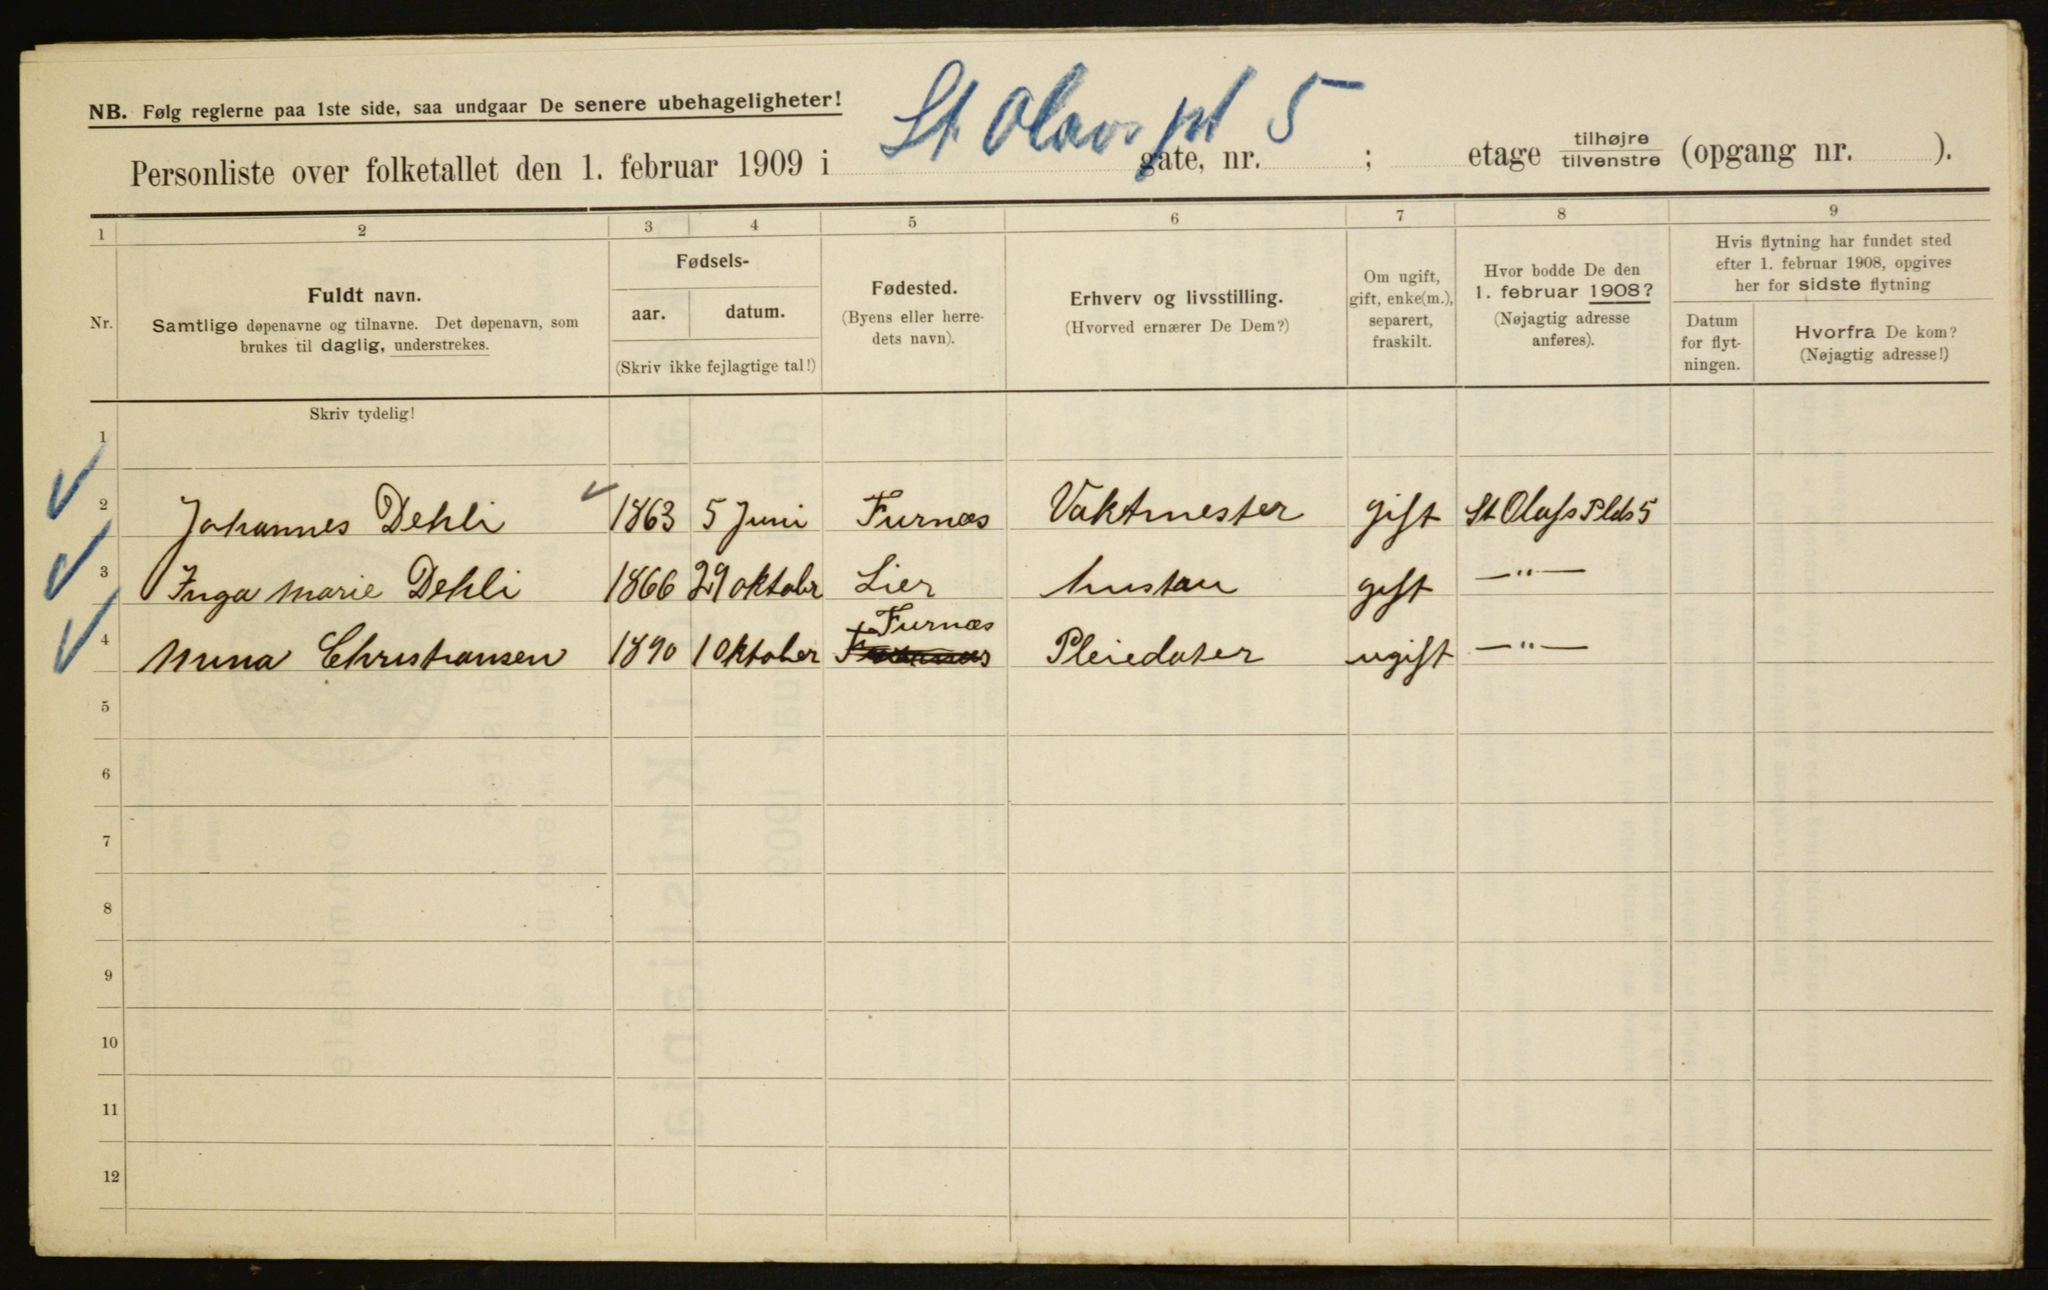 NB. Følg reglerne paa 1ste side, saa undgaar De senere ubehageligheter!
St Olavs pl 5
Personliste over folketallet den 1. februar 1909 i gate, nr. ; etage tilhøjre tilvenstre (opgang nr. ).
1 2 3 4 5 6 7 8 9
Nr.
Fuldt navn.
Samtlige døpenavne og tilnavne. Det døpenavn, som
brukes til daglig, understrekes.
Fødsels-
aar. datum.
(Skriv ikke fejlagtige tal!)
Fødested.
(Byens eller herre-
dets navn).
Erhverv og livsstilling.
(Hvorved ernærer De Dem?)
Om ugift,
gift, enke(m.),
separert,
fraskilt.
Hvor bodde De den
1. februar 1908?
(Nøjagtig adresse
anføres).
Hvis flytning har fundet sted
efter 1. februar 1908, opgives
her for sidste flytning
Datum
for flyt-
ningen.
Hvorfra De kom?
(Nøjagtig adresse!)
Skriv tydelig!
1
2 Johannes Dehli 1863 5 Juni Furnæs Vaktmester gift St Olafs Plds 5
3 Inga Marie Dehli 1866 29 oktobr Lier hustru gift —"—
Furnæs
4 Anna Christiansen 1890 1 Oktober Pleiedater ugift —"—
5
6
7
8
9
10
11
12